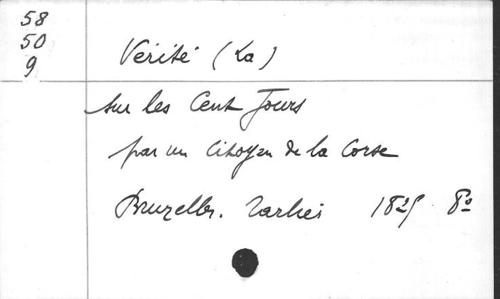 58
50
9
Vérité (La)
sur les Cent Jours
par un Citoyen de la Corse
Bruxelles. Tarlier 1825 8º